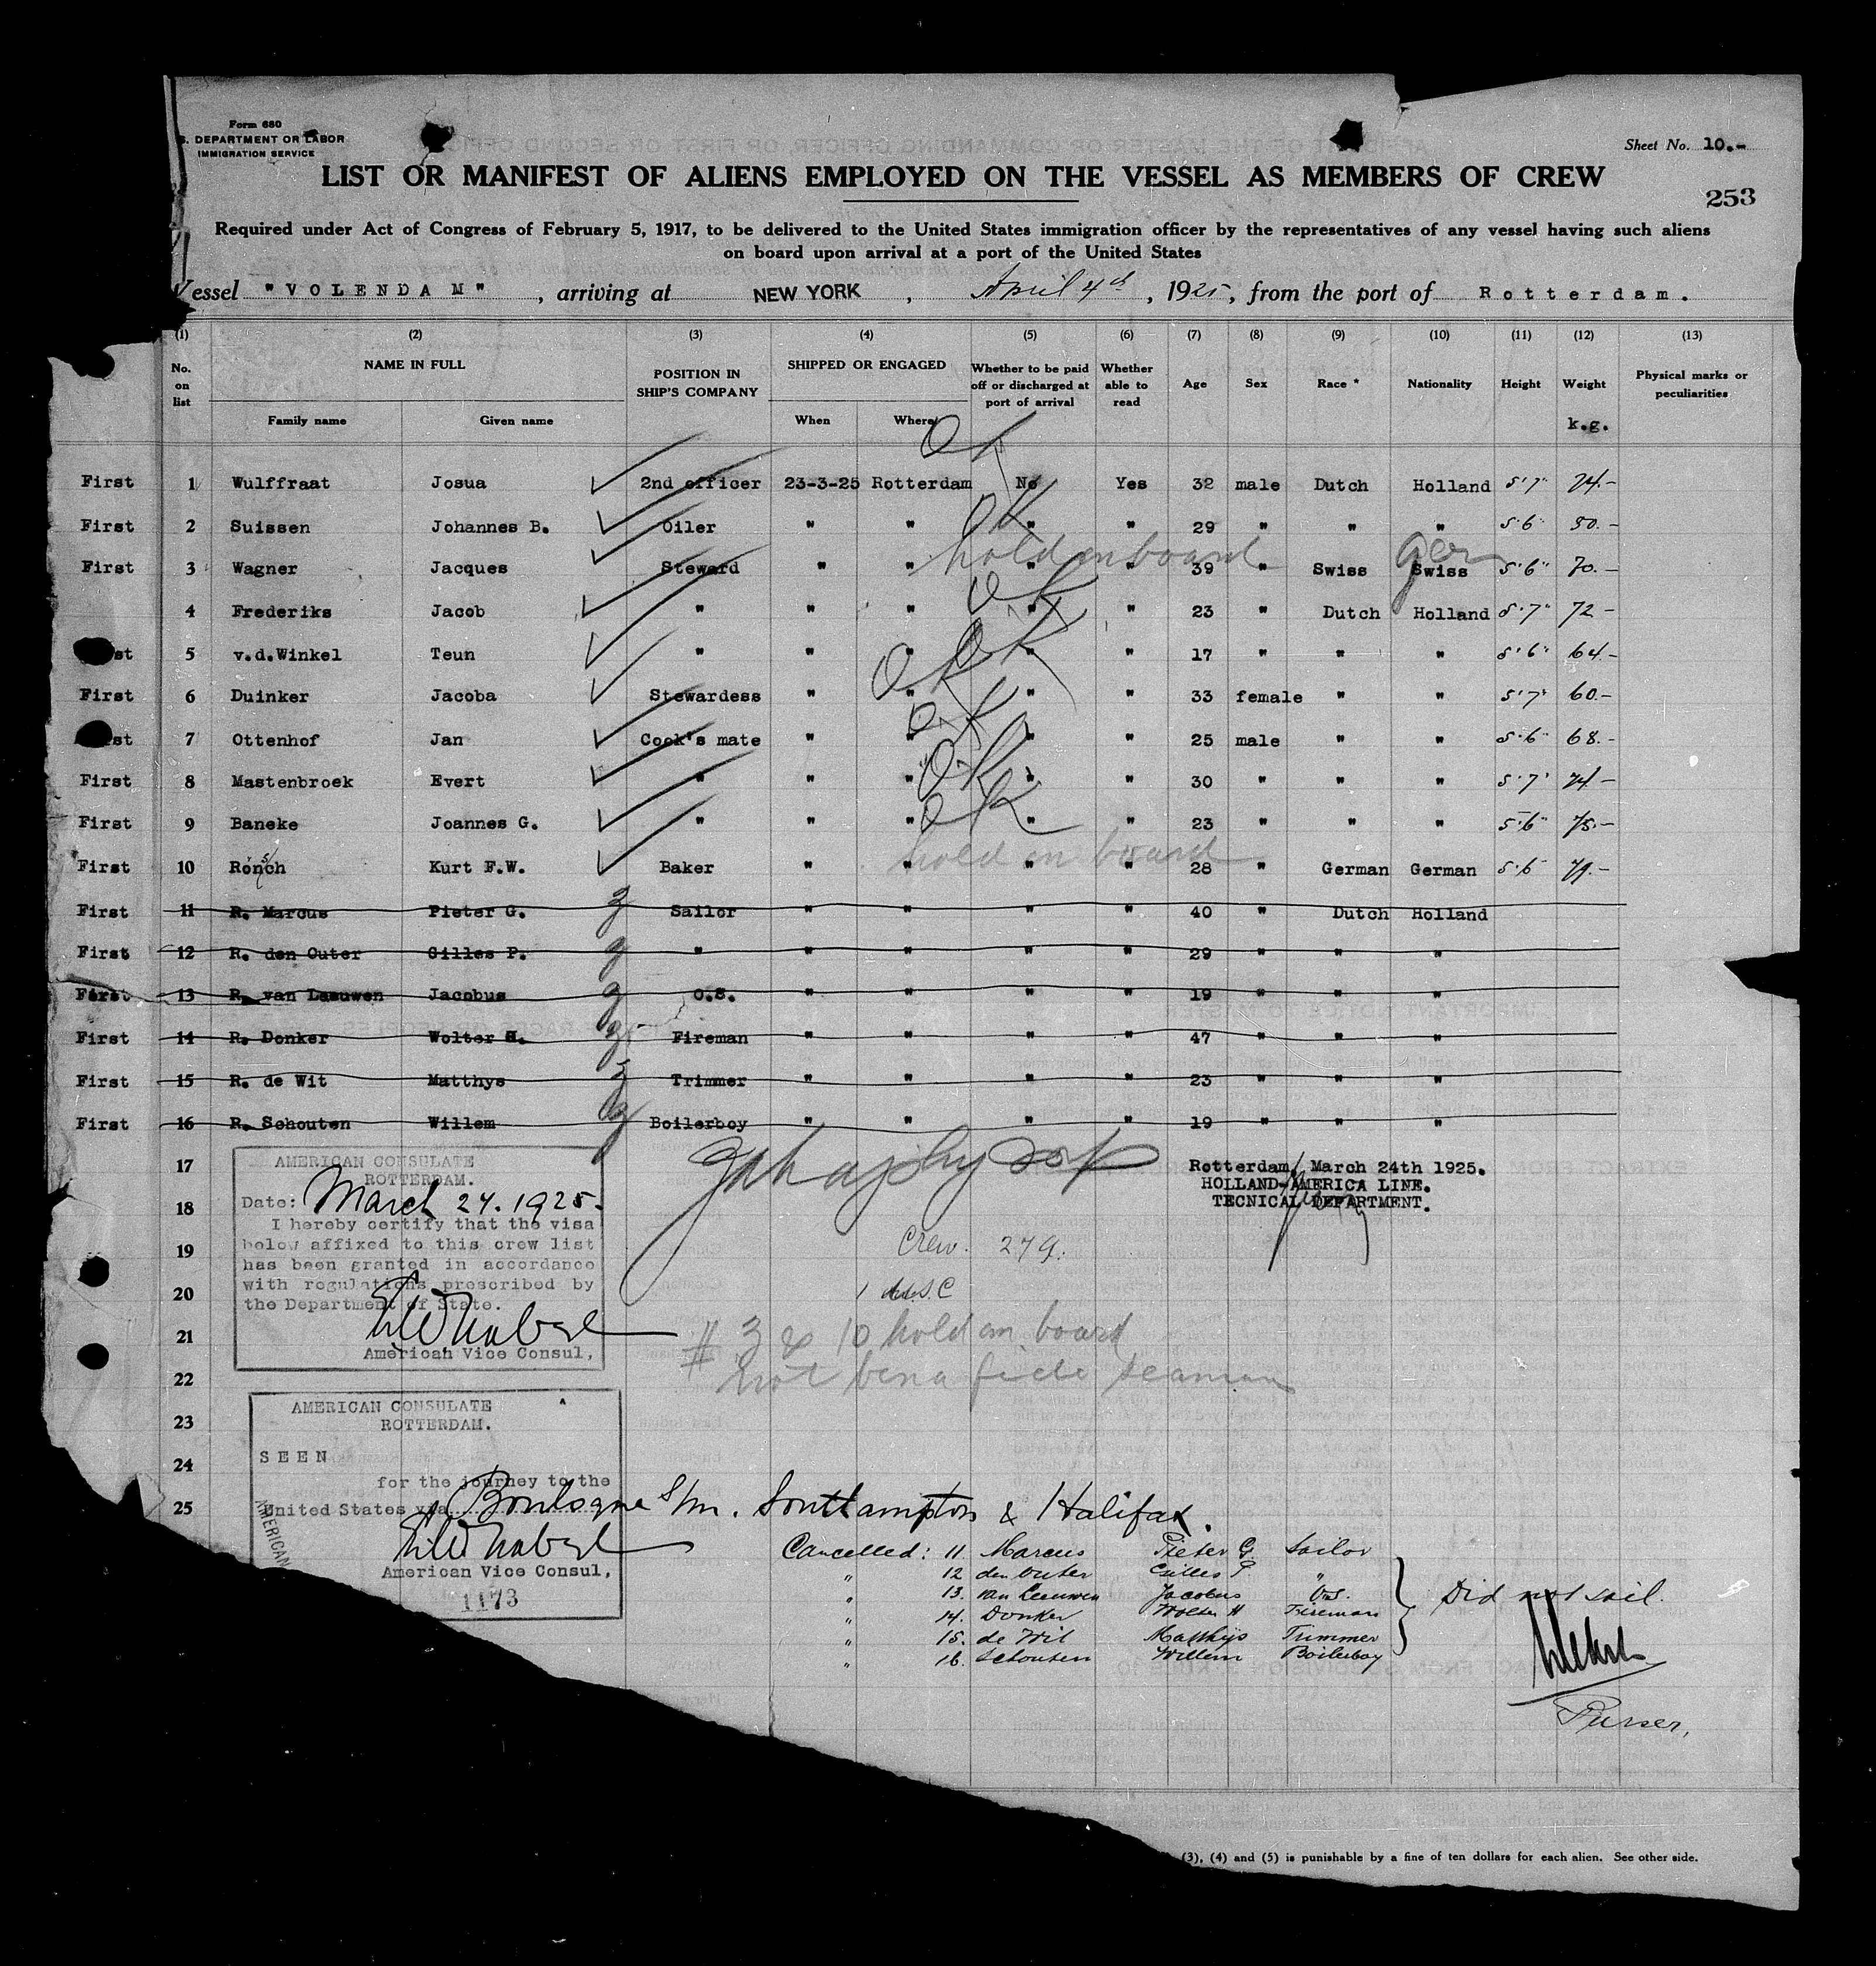 Form 680
S. DEPARTMENT OR LABOR
IMMIGRATION SERVICE
Sheet No. 10.-
LIST OR MANIFEST OF ALIENS EMPLOYED ON THE VESSEL AS MEMBERS OF CREW
253
Required under Act of Congress of February 5, 1917, to be delivered to the United States immigration officer by the representatives of any vessel having such aliens
on board upon arrival at a port of the United States
Vessel "VOLENDAM", arriving at NEW YORK, April 4th, 1925, from the port of Rotterdam.
(1) (2) (3) (4) (5) (6) (7) (8) (9) (10) (11) (12) (13)
No. on list NAME IN FULL POSITION IN SHIP'S COMPANY SHIPPED OR ENGAGED Whether to be paid off or discharged at port of arrival Whether able to read Age Sex Race * Nationality Height Weight Physical marks or peculiarities
Family name Given name When Where k.g.
OK
First 1 Wulffraat Josua 2nd officer 23-3-25 Rotterdam No Yes 32 male Dutch Holland 5'7" 74.-
OK
First 2 Suissen Johannes B. Oiler " " " " 29 " " " 5'6" 80.-
hold on board Ger
First 3 Wagner Jacques Steward " " " " 39 " Swiss Swiss 5'6" 70.-
OK
4 Frederiks Jacob " " " " " 23 " Dutch Holland 5'7" 72-
OK
st 5 v.d.Winkel Teun " " " " " 17 " " " 5'6" 64.-
OK
First 6 Duinker Jacoba Stewardess " " " " 33 female " " 5'7" 60.-
OK
st 7 Ottenhof Jan Cook's mate " " " " 25 male " " 5'6" 68.-
OK
First 8 Mastenbroek Evert " " " " " 30 " " " 5'7" 74-
OK
First 9 Baneke Joannes G. " " " " " 23 " " " 5'6" 75.-
hold on board
First 10 Ronsch Kurt F.W. Baker " " " " 28 " German German 5'6" 79.-
First 11 R. Marcus Pieter G. Sailor " " " " 40 " Dutch Holland
First 12 R. den Outer Gilles P. " " " " " 29 " " "
First 13 R. van Leeuwen Jacobus O.S. " " " " 19 " " "
First 14 R. Donker Wolter H. Fireman " " " " 47 " " "
First 15 R. de Wit Matthys Trimmer " " " " 23 " " "
First 16 R. Schouten Willem Boilerboy " " " " 19 " " "
17
18
19
20
21
22
23
24
25
AMERICAN CONSULATE
ROTTERDAM.
Date: March 24. 1925.
I hereby certify that the visa
below affixed to this crew list
has been granted in accordance
with regulations prescribed by
the Department of State.
American Vice Consul,
Rotterdam, March 24th 1925.
HOLLAND-AMERICA LINE.
TECNICAL DEPARTMENT.
Crew. 279.
1
# 3 & 10 hold on board
not bona fide seaman
AMERICAN CONSULATE
ROTTERDAM.
SEEN
for the journey to the
United States via Boulogne s/m. Southampton & Halifax.
American Vice Consul,
1173
AMERICAN
Cancelled: 11 Marcus Pieter G Sailor
" 12 den Outer Gilles P "
" 13. van Leeuwen Jacobus O.S.
" 14. Donker Wolter H Fireman
" 15. de Wit Matthijs Trimmer
" 16. Schouten Willem Boilerboy
Did not sail.
Purser.
(3), (4) and (5) is punishable by a fine of ten dollars for each alien. See other side.